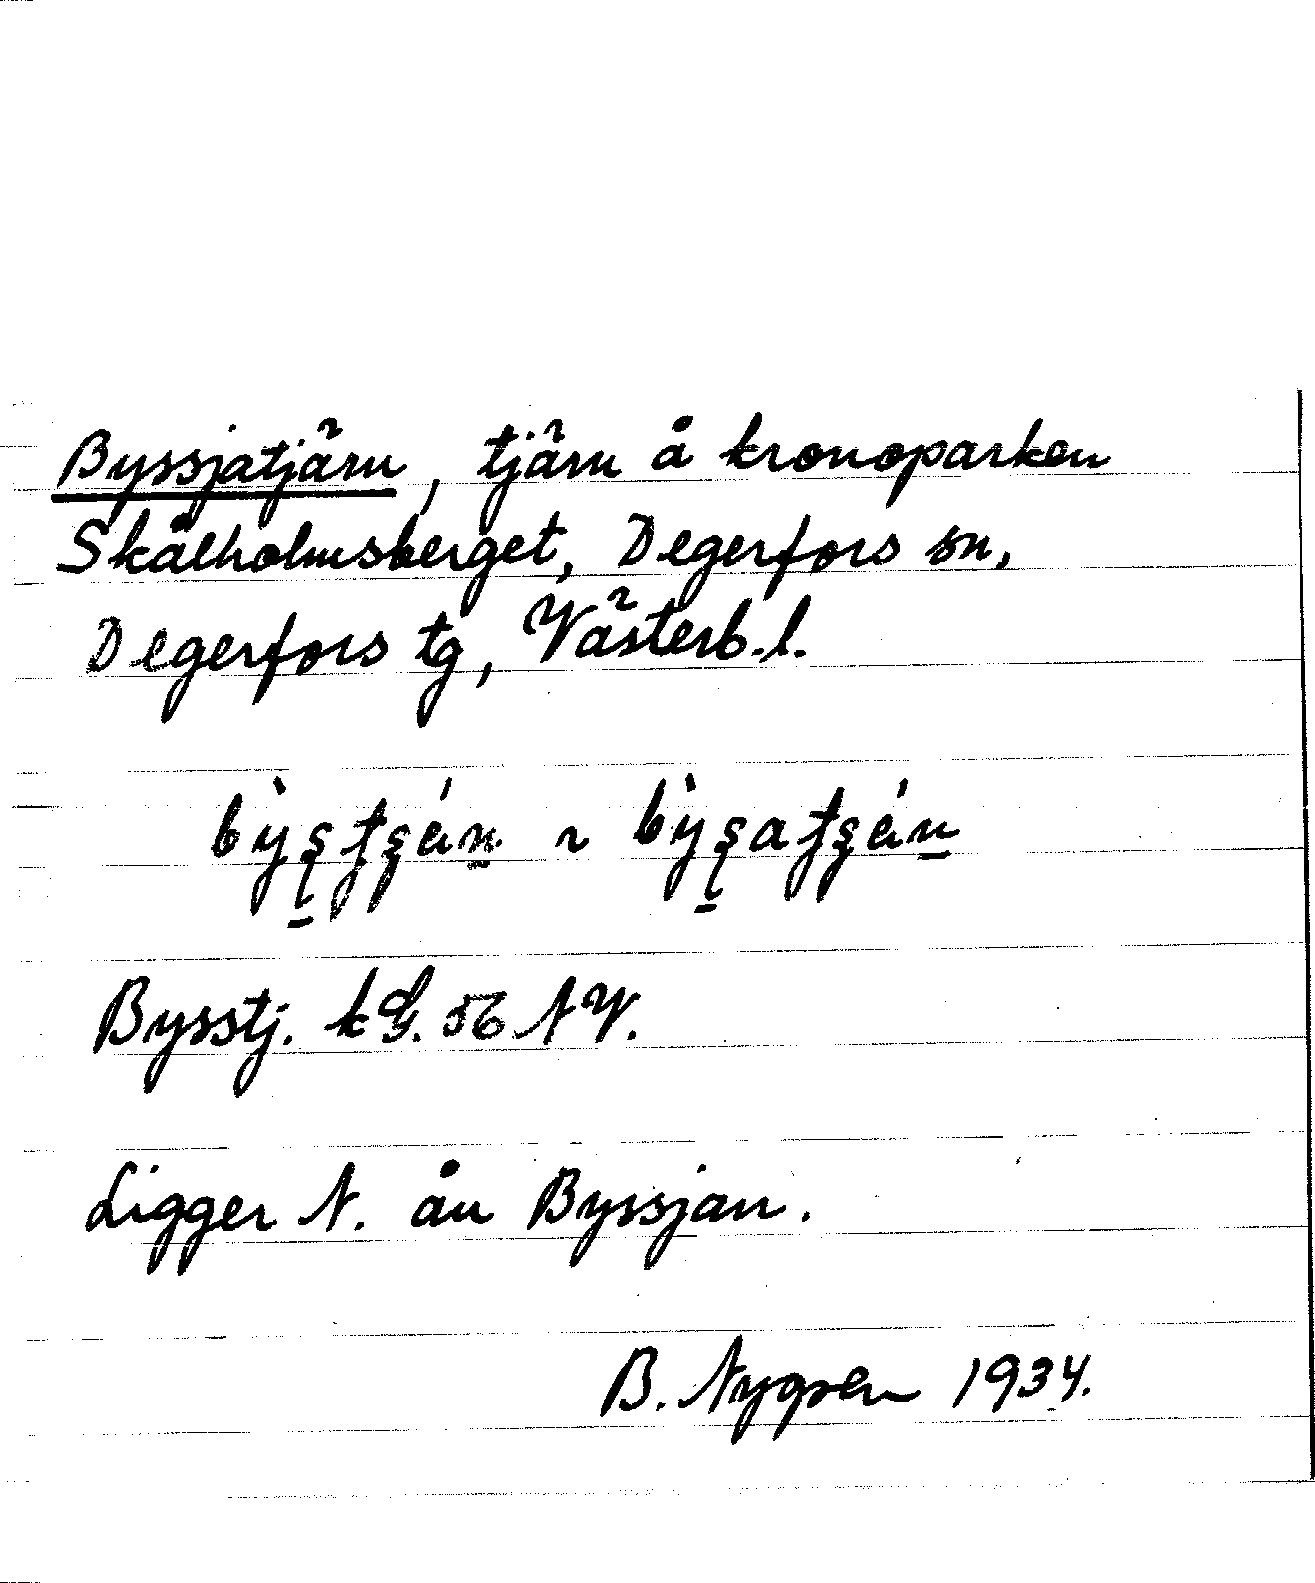 Byssjatjärn, tjärn å kronoparken
Skålholmsberget, Degerfors sn,
Degerfors tg, Västerb. l.
Bysstj. kG. 56 NV.
Ligger N. ån Byssjan.
B. Nygren 1934.